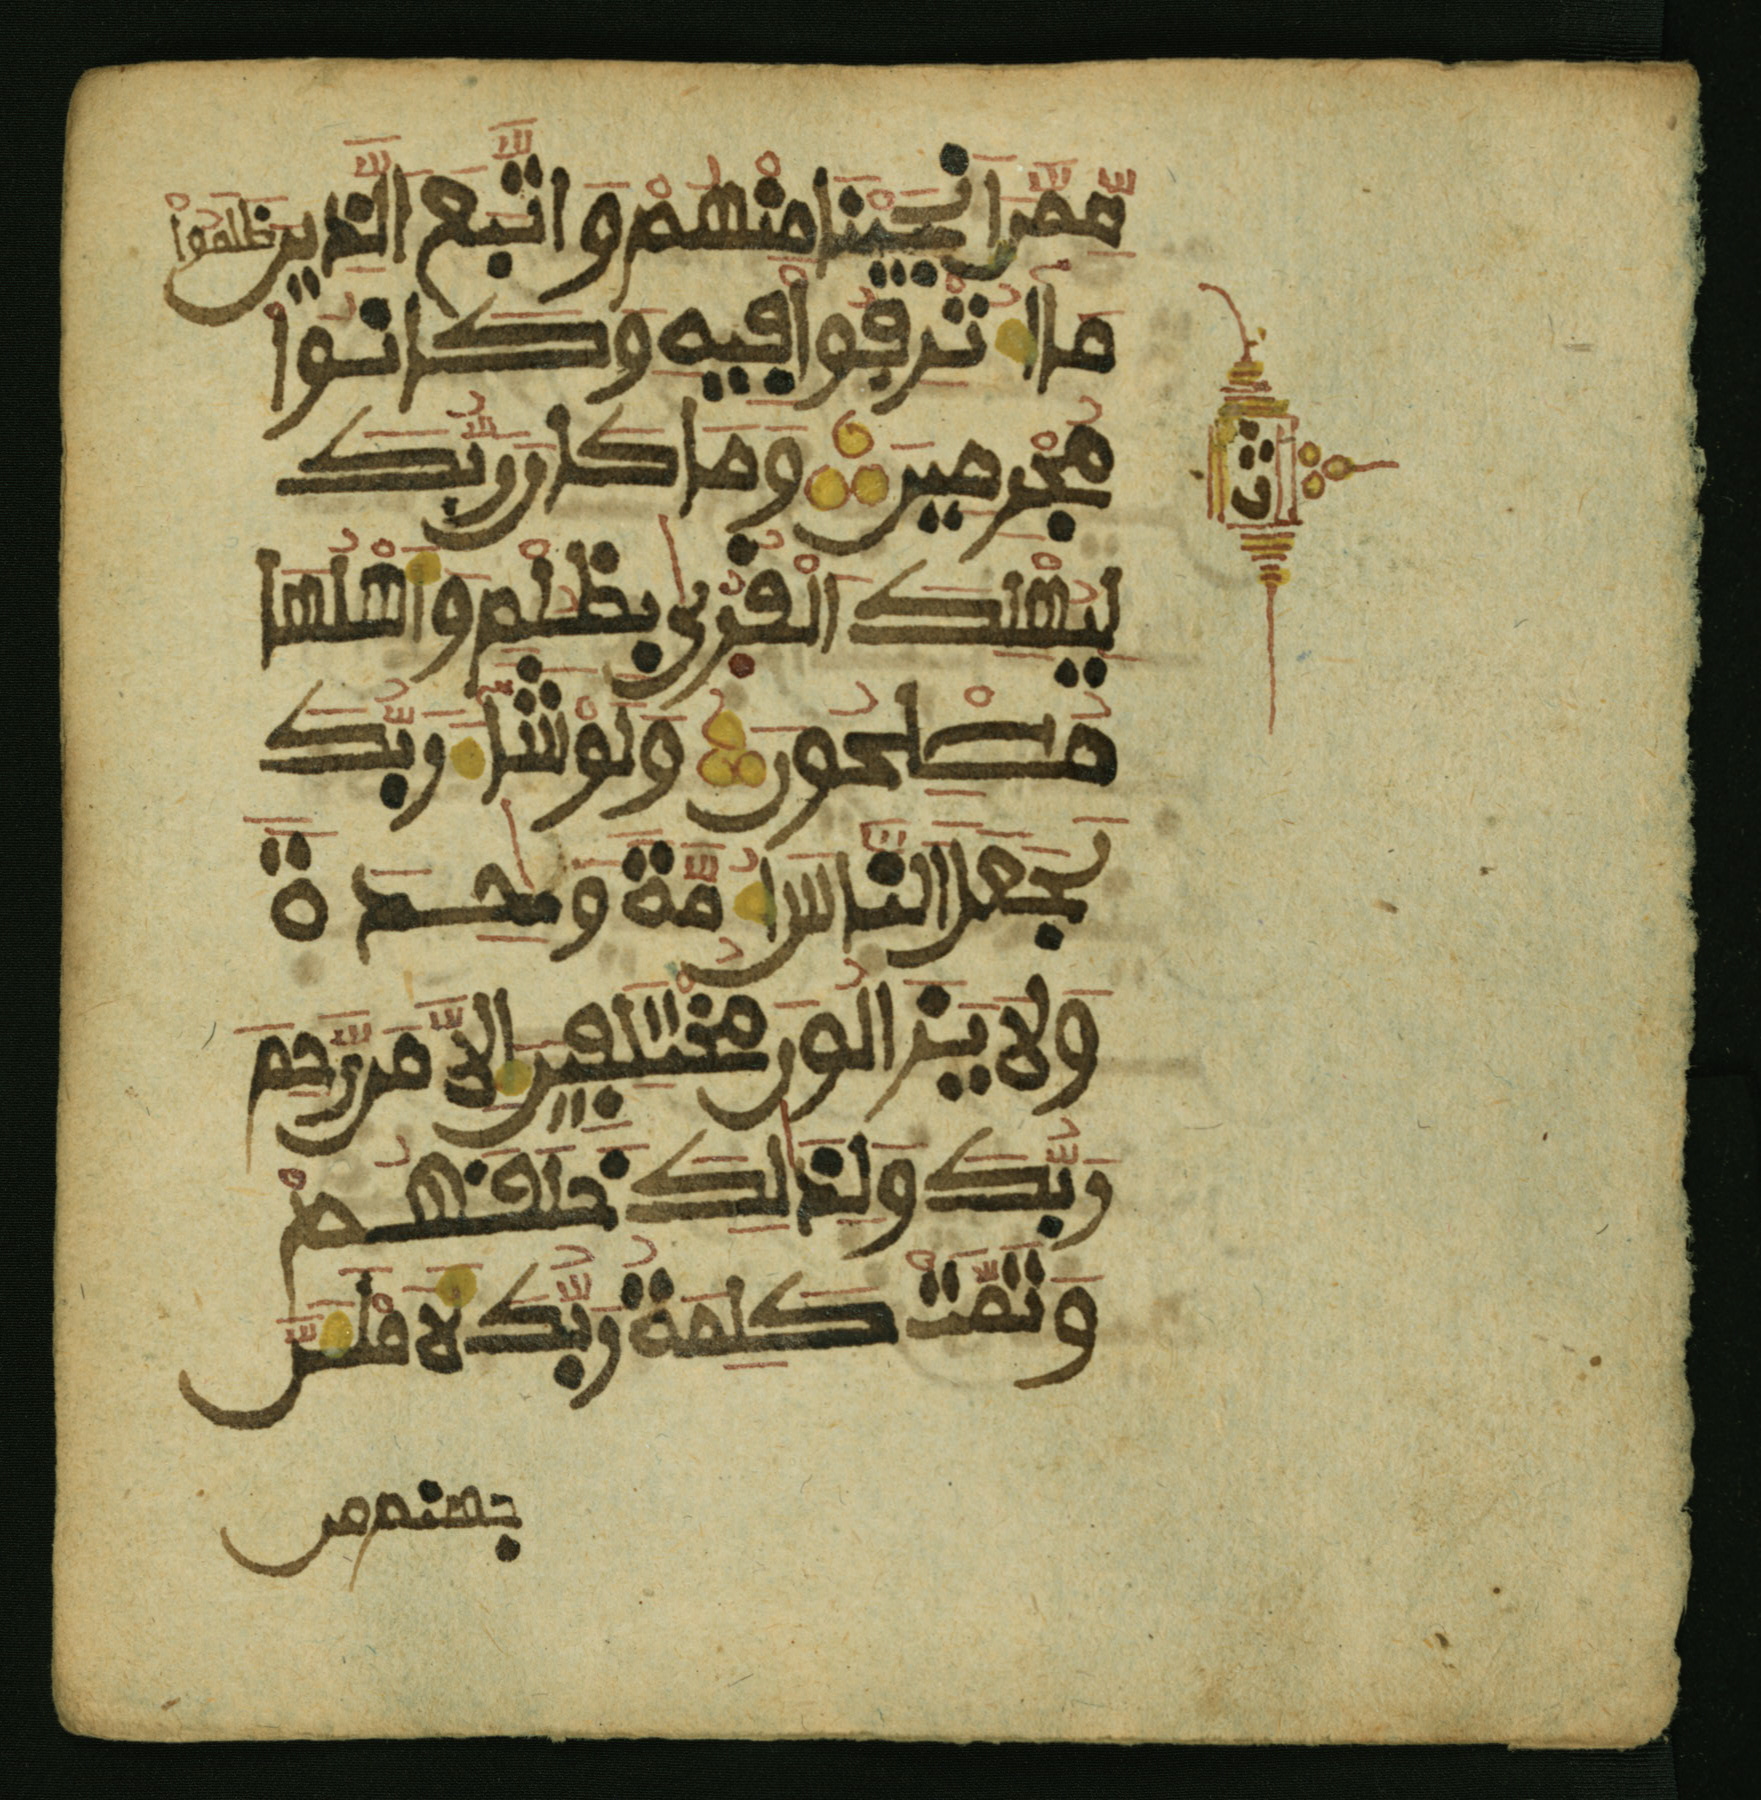 مِّمَّنَ انجَيْنَا مِنْهُمْ وَاتَّبَعَ الَّذِينَ ظَلَمُواْ
مَا أُتْرِفُواْ فِيهِ وَكَانُواْ
مُجْرِمِينَ وَمَا كَانَ رَبُّكَ
لِيُهْلِكَ الْقُرَىٰ بِظُلْمٍ وَأَهْلُهَا
مُصْلِحُونَ وَلَوْ شَآءَ رَبُّكَ
ث
لَجَعَلَ النَّاسَ أُمَّةً وَٰحِدَةً
وَلَا يَزَالُونَ مُخْتَلِفِينَ إِلَّا مَن رَّحِمَ
رَبُّكَ وَلِذَٰلِكَ خَلَقَهُمْ
وَتَمَّتْ كَلِمَةُ رَبِّكَ لَأَمْلَأَنَّ
جهنم من